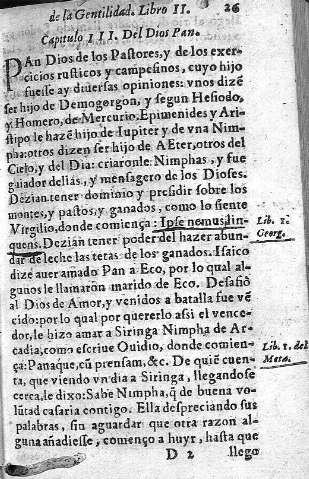 de la Gentilidad. Libro II. 26
Capitulo III. Del Dios Pan.
PAn Dios de los Pastores, y de los exer-
cicios rusticos y campesinos, cuyo hijo
fuesse ay diuersas opiniones: vnos dizẽ
ser hijo de Demogorgon, y segun Hesiodo,
y Homero, de Mercurio. Epimenides y Ari-
stipo le hazẽ hijo de Iupiter y de vna Nim-
pha: otros dizen ser hijo de AEter, otros del
Cielo, y del Dia: criaronle Nimphas, y fue
guiador dellas, y mensagero de los Dioses.
Dezian tener dominio y presidir sobre los
montes, y pastos, y ganados, como lo siente
Virgilio, donde comiença: Ipse nemus lin-
quens. Dezian tener poder del hazer abun-
dar de leche las tetas de los ganados. Isaico
dize auer amado Pan a Eco, por lo qual al-
gunos le llamaron marido de Eco. Desafiò
al Dios de Amor, y venidos a batalla fue vẽ
cido: por lo qual por quererlo assi el vence-
dor, le hizo amar a Siringa Nimpha de Ar-
cadia, como escriue Ouidio, donde comien-
ça: Panaque, cũ prensam, &c. De quiẽ cuen-
ta, que viendo vn dia a Siringa, llegandose
cerca, le dixo: Sabe Nimpha, q̃ de buena vo-
lũtad casaria contigo. Ella despreciando sus
palabras, sin aguardar que otra razon al-
guna añadiesse, començo a huyr, hasta que
D 2 llego
Lib. 1.
Georg.
Lib. 1. del
Meta.